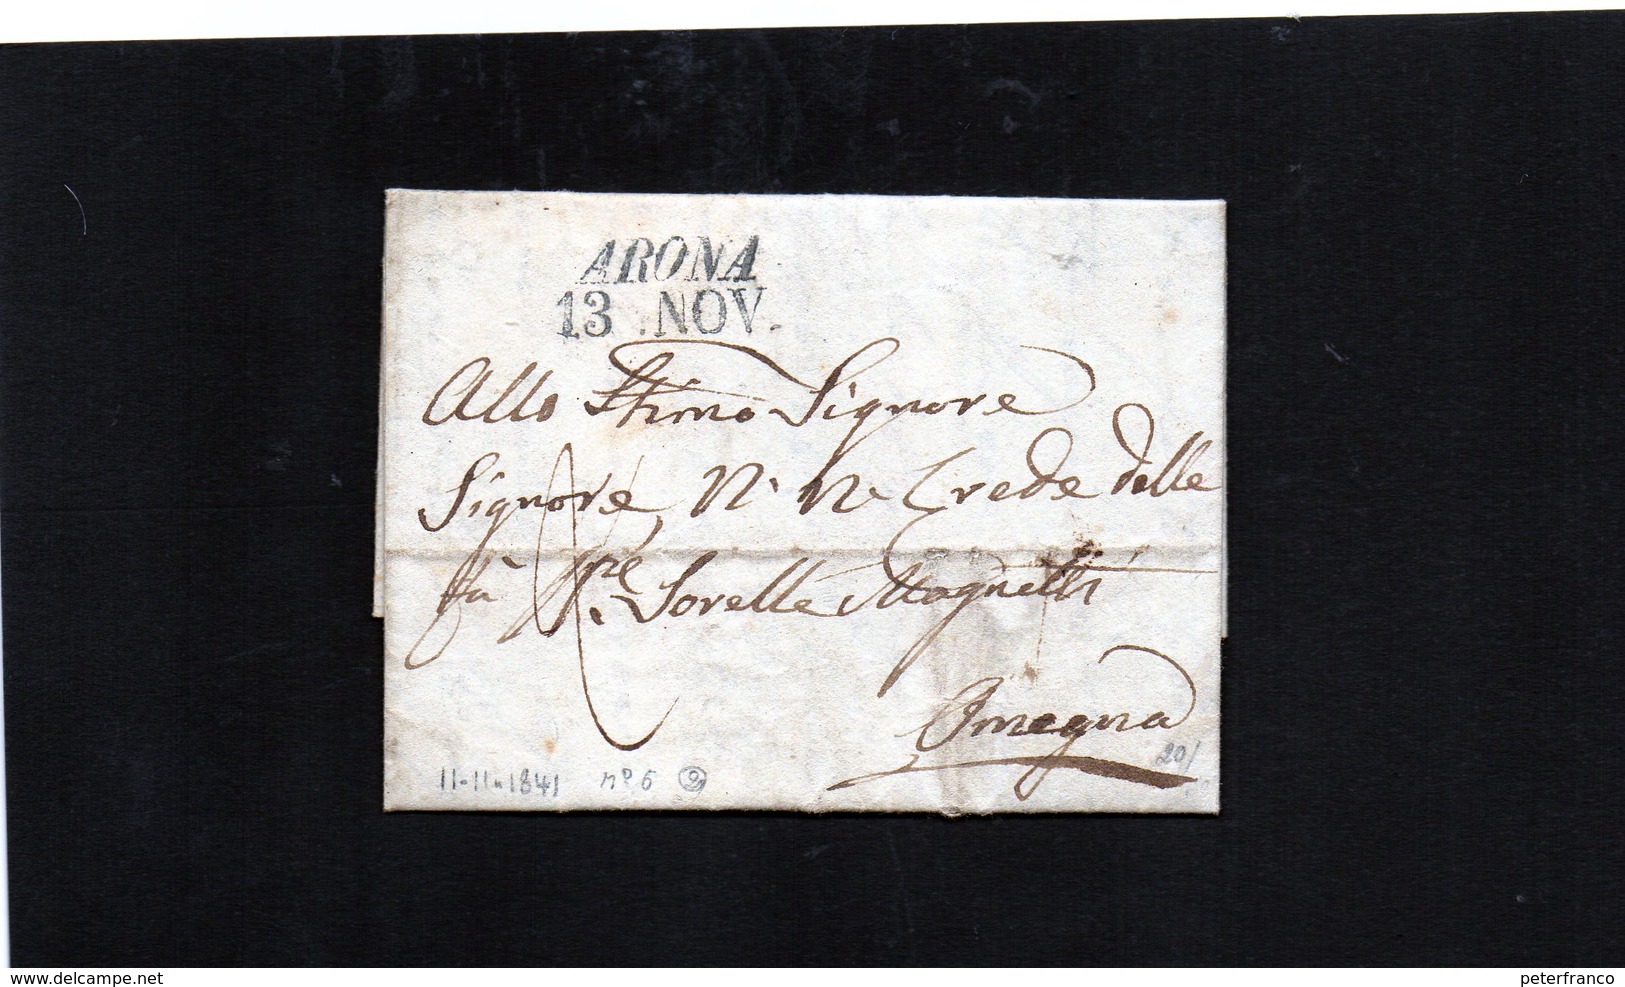 ARONA
13 . NOV.
Allo Stimo Signore
Signore, N. N. Erede delle
fù Sorelle Magnetti
Omegna
20/
11-11-1841 n° 6 2
www.delcampe.net
peterfranco